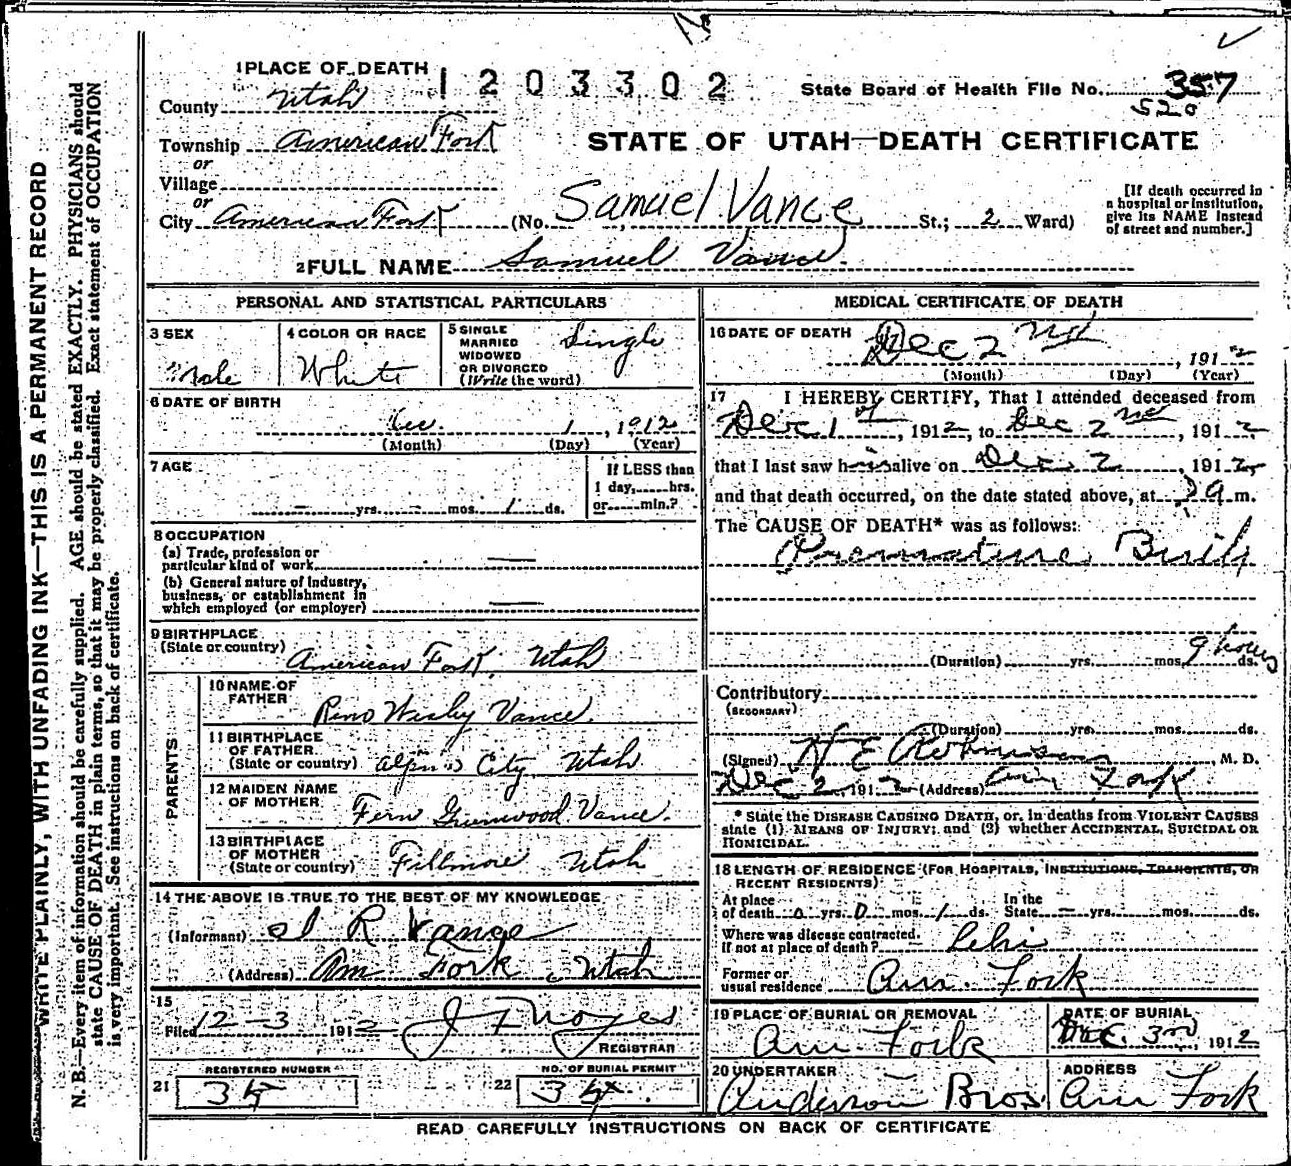 1 PLACE OF DEATH 1203302 State Board of Health File No. 357
County Utah 520
Township American Fork STATE OF UTAH—DEATH CERTIFICATE
or
Village
or
City American Fork (No. Samuel Vance St.; 2 Ward)
[If death occurred in a hospital or institution, give its NAME instead of street and number.]
2 FULL NAME Samuel Vance.
PERSONAL AND STATISTICAL PARTICULARS
3 SEX Male
4 COLOR OR RACE White
5 SINGLE MARRIED WIDOWED OR DIVORCED (Write the word) Single
6 DATE OF BIRTH
Dec. 1, 1912
(Month) (Day) (Year)
7 AGE
– yrs. – mos. 1 ds.
If LESS than 1 day, hrs. or min.?
8 OCCUPATION
(a) Trade, profession or particular kind of work —
(b) General nature of industry, business, or establishment in which employed (or employer) —
9 BIRTHPLACE
(State or country) American Fork, Utah
PARENTS
10 NAME OF FATHER Wesley Vance.
11 BIRTHPLACE OF FATHER (State or country) City Utah
12 MAIDEN NAME OF MOTHER Fern Vance.
13 BIRTHPLACE OF MOTHER (State or country) Fillmore Utah
14 THE ABOVE IS TRUE TO THE BEST OF MY KNOWLEDGE
(Informant) R Vance
(Address) Am Fork, Utah
15
Filed 12-3 1912 Noyes
REGISTRAR
REGISTERED NUMBER NO. OF BURIAL PERMIT
21 34 22 34.
MEDICAL CERTIFICATE OF DEATH
16 DATE OF DEATH Dec 2 nd, 1912
(Month) (Day) (Year)
17 I HEREBY CERTIFY, That I attended deceased from
Dec 1st, 1912, to Dec 2nd, 1912,
that I last saw his alive on Dec. 2, 1912,
and that death occurred, on the date stated above, at m.
The CAUSE OF DEATH* was as follows:
Premature Birth
(Duration) yrs. mos. 9 hours ds.
Contributory
(SECONDARY)
(Duration) yrs. mos. ds.
(Signed) H E Robinson, M. D.
Dec 2, 1912 (Address) Am Fork
* State the DISEASE CAUSING DEATH, or, in deaths from VIOLENT CAUSES
state (1) MEANS OF INJURY; and (2) whether ACCIDENTAL, SUICIDAL OR
HOMICIDAL.
18 LENGTH OF RESIDENCE (FOR HOSPITALS, INSTITUTIONS, TRANSIENTS, OR
RECENT RESIDENTS)
At place of death 0 yrs. 0 mos. 1 ds. In the State – yrs. mos. ds.
Where was disease contracted. If not at place of death? – Lehi
Former or usual residence Am. Fork
19 PLACE OF BURIAL OR REMOVAL Am Fork
DATE OF BURIAL Dec. 3rd, 1912
20 UNDERTAKER Anderson Bros.
ADDRESS Am Fork
READ CAREFULLY INSTRUCTIONS ON BACK OF CERTIFICATE
WRITE PLAINLY, WITH UNFADING INK—THIS IS A PERMANENT RECORD
N. B.—Every item of information should be carefully supplied. AGE should be stated EXACTLY. PHYSICIANS should
state CAUSE OF DEATH in plain terms, so that it may be properly classified. Exact statement of OCCUPATION
is very important. See instructions on back of certificate.